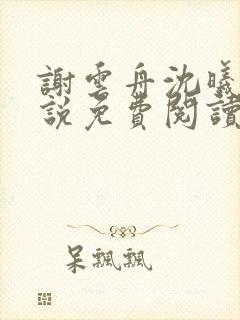 謝雲舟沈曦
說免費閱讀
呆飄飄